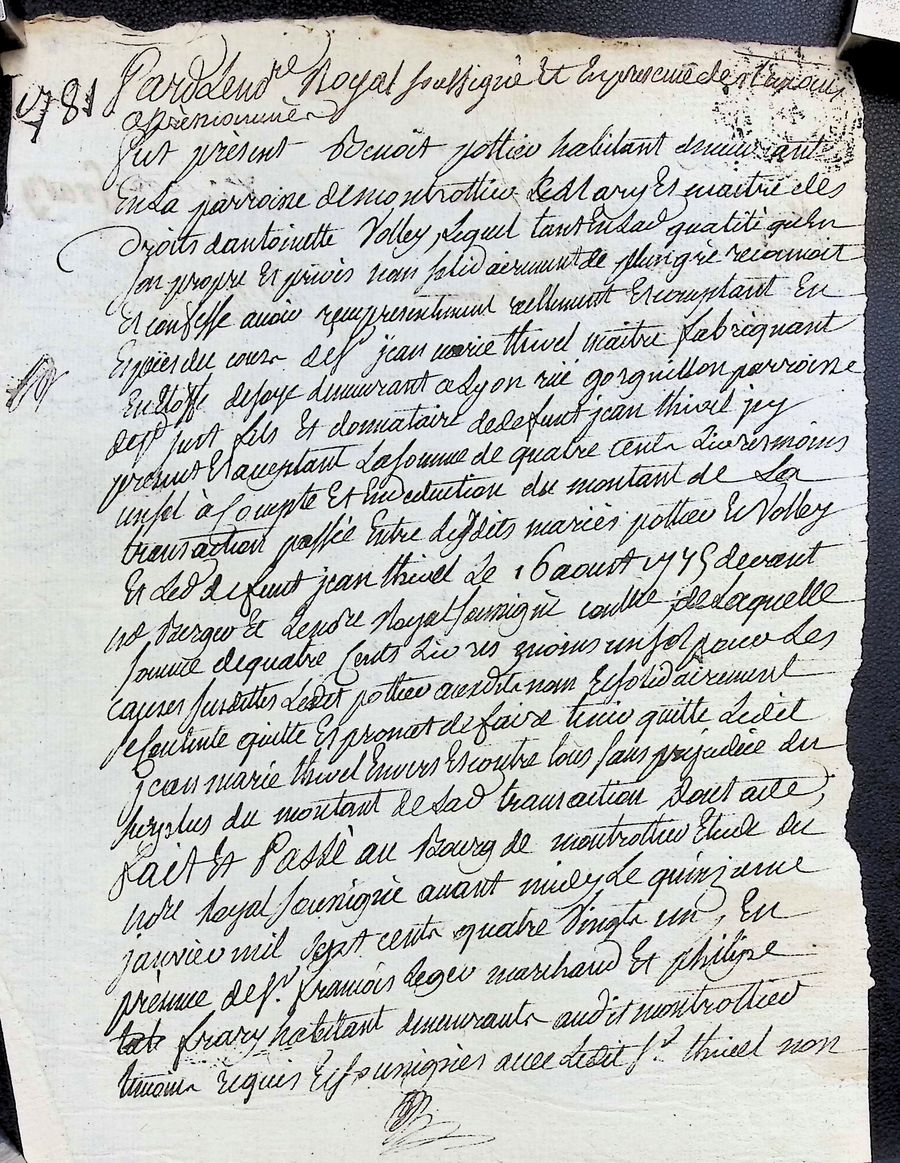 1781
Pard Le nore Royal soussigné Et En presence de temoins
apresnommés
fut présent Benoit pottier habitant demeurant
En La parroisse de montrottier Led Mary Et maitre des
Droits dantoinette Volley, Lequel tant En Lad qualité qu'En
son propre Et privés nom solidairement de plein gré reconnoit
Et confesse avoir reçu presentement reellement Et comptant En
Espèces du cours de Sr jean marie thivel maitre fabriquant
En Etoffe de soye demeurant a Lyon rue gorguillon parroisse
de St just fils Et donnataire de defunt jean thivel icy
present Et acceptant La somme de quatre Cents Livres moins
un sol à Compte Et En deduction du montant de La
transaction passée Entre Lesdits mariés pottier Et Volley
Et Led defunt jean thivel Le 16 aoust 1775 devant
me Berger Et Le nore Royal soussigné de Laquelle
somme de quatre Cents Livres moins un sol pour Les
causes susdittes Ledit pottier auxdits noms Et solidairement
se Contente quitte Et promet de faire tenir quitte Ledit
jean marie thivel Envers Et contre tous sans prejudice du
surplus du montant de Lad transaction Dont acte,
fait Et Passé au Bourg de montrottier Etude du
nore Royal soussigné avant midy Le quinzieme
janvier mil sept cents quatre Vingts un, En
présence de Sr françois Leger marchand Et philipe
frary habitant demeurants audit montrottier
temoins requis Et soussignés avec Ledit Sr thivel non